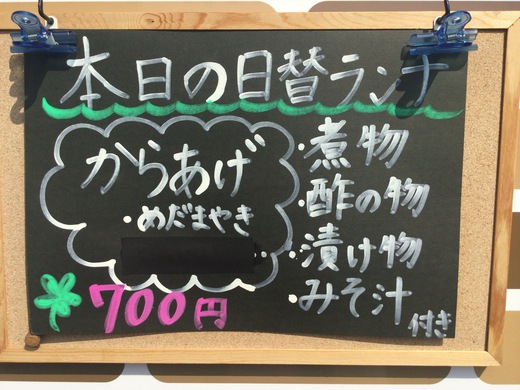 本日の日替ランチ
からあげ
・めだまやき
700円
・煮物
・酢の物
・漬け物
みそ汁
付き